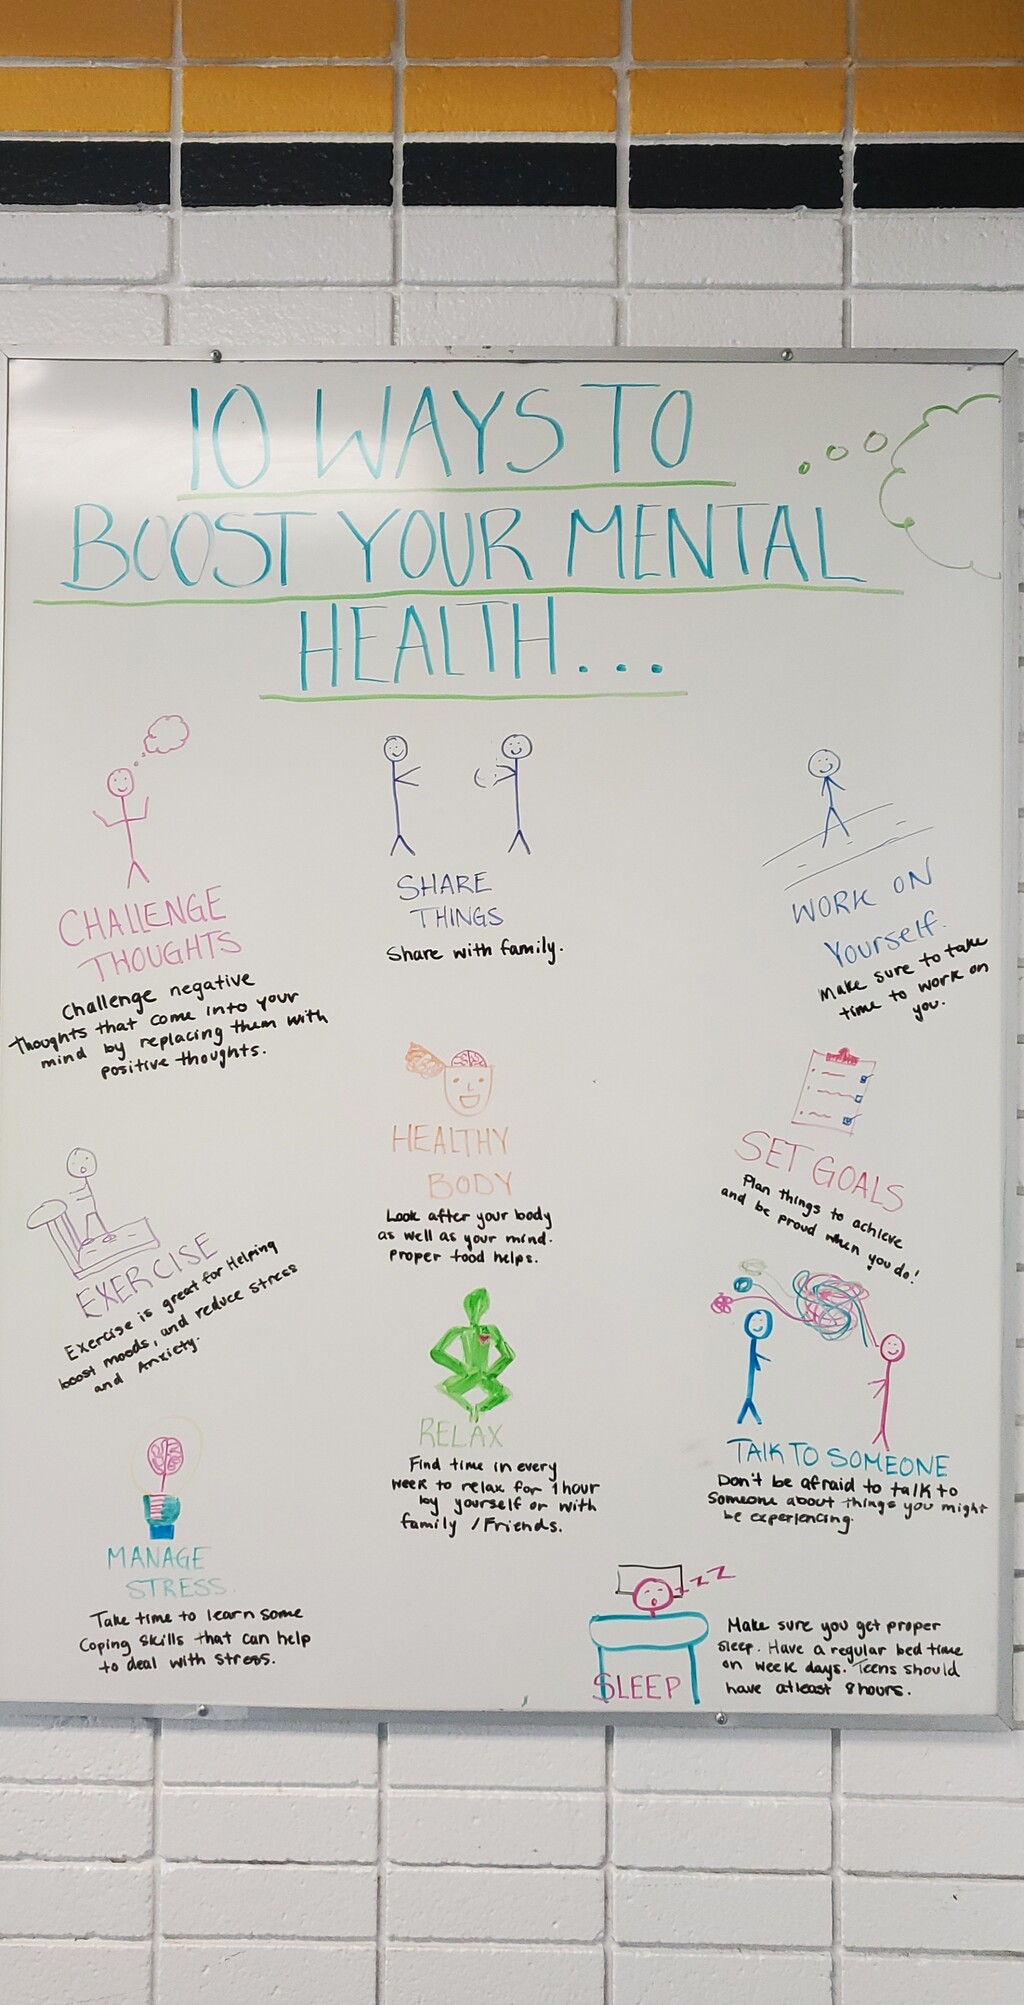 10 WAYS TO
BOOST YOUR MENTAL
HEALTH...
CHALLENGE
THOUGHTS
Challenge negative
thoughts that come into your
mind by replacing them with
positive thoughts.
SHARE
THINGS
Share with family.
WORK ON
Yourself.
Make sure to take
time to work on
you.
HEALTHY
BODY
Look after your body
as well as your mind.
Proper food helps.
SET GOALS
Plan things to achieve
and be proud when you do!
EXERCISE
Exercise is great for Helping
boost moods, and reduce stress
and Anxiety.
RELAX
Find time in every
week to relax for 1 hour
by yourself or with
family / Friends.
TALK TO SOMEONE
Don't be afraid to talk to
Someone about things you might
be experiencing.
MANAGE
STRESS.
Take time to learn some
Coping Skills that can help
to deal with stress.
zzz
SLEEP
Make sure you get proper
sleep. Have a regular bed time
on week days. Teens should
have atleast 8 hours.